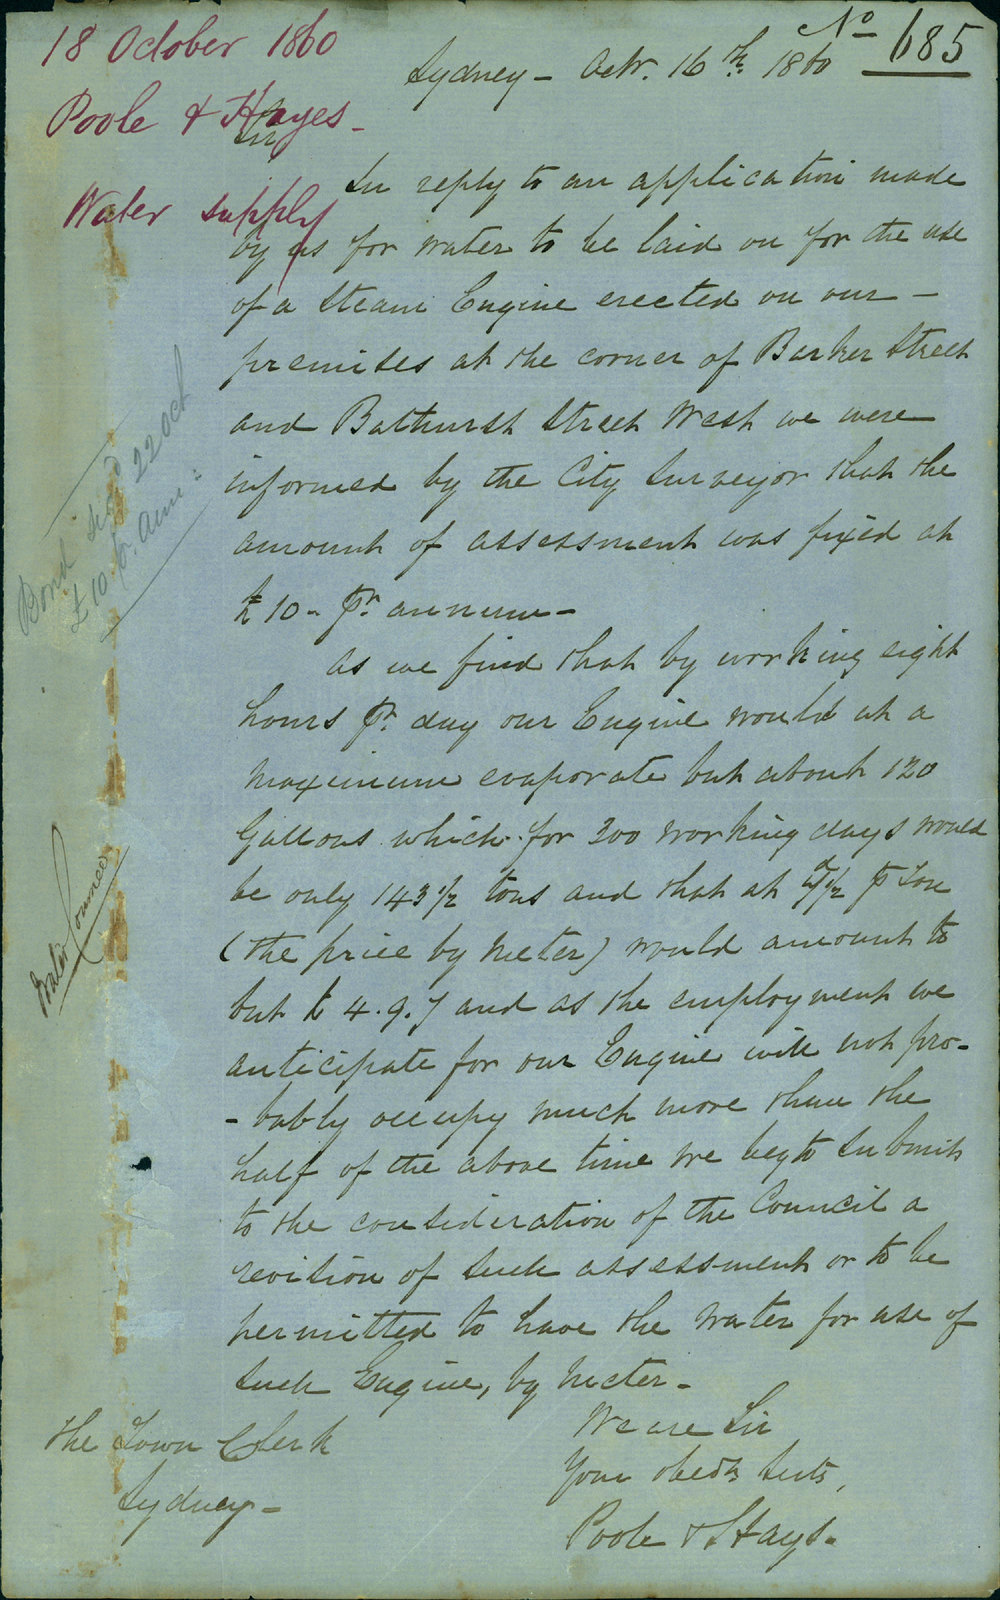 18 October 1860
No 685
Sydney - Octr. 16th. 1860
Poole & Hayes -
Sir
Water supply
In reply to an application made
by us for water to be laid on for the use
of a Steam Engine erected on our -
premises at the corner of Barker Street
and Bathurst Street West we were
informed by the City Surveyor that the
amount of assessment was fixed at
£10 - pr. annum -
As we find that by working eight
hours pr. day our Engine would at a
maximum evaporate but about 120
Gallons which for 300 working days would
be only 143 1/2 tons and that at 7 1/2d p Ton
(the price by meter) would amount to
but £4.9.7 and as the employment we
anticipate for our Engine will not pro-
-bably occupy much more than the
half of the above time we beg to submit
to the consideration of the Council a
revision of such assessment or to be
permitted to have the water for use of
such Engine, by meter -
We are Sir
Your obedt Svts,
Poole & Hays -
The Town Clerk
Sydney -
Bond sigd 22 Oct
£10 p. ann:
Water Councer